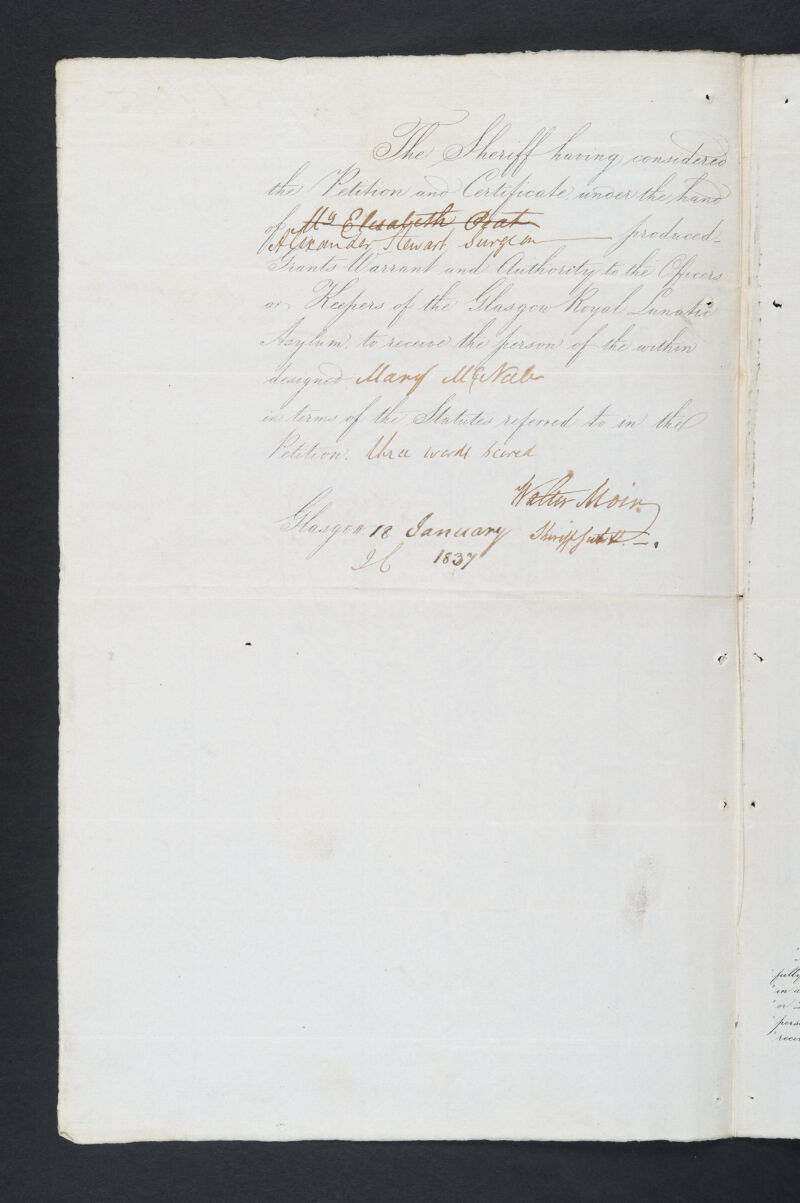 The Sheriff having considered
the Petition and Certificate under the hand
of Mrs Elisabeth Peat
Alexander Stewart Surgeon produced
Grants Warrant and Authority to the Officers
or Keepers of the Glasgow Royal Lunatic
Asylum, to receive the person of the within
designed Mary McNab
in terms of the Statutes referred to in the
Petition. three words scored
Walter Moir
Glasgow 18 January Sheriff Subst.
1837
fully
in a
or
pers
recei